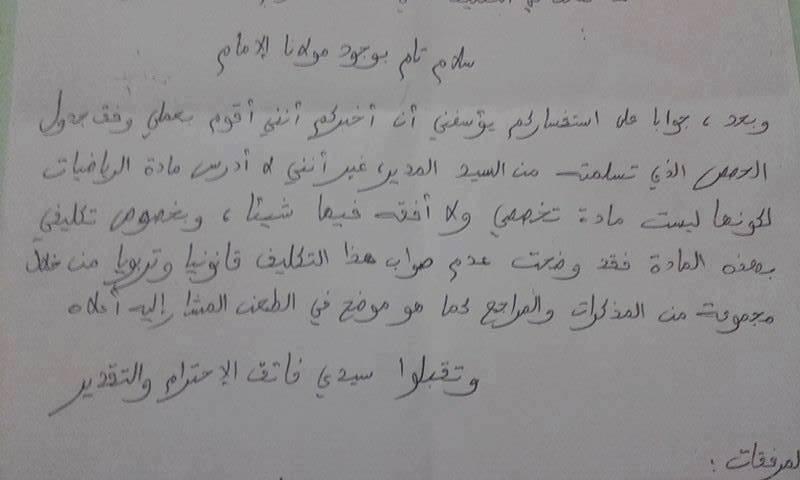 سلام تام بوجود مولانا الإمام
وبعد، جوابا على استفساركم يؤسفني أن أخبركم أنني أقوم بعملي وفق جدول
الحصص الذي تسلمته من السيد المدير، غير أنني لا أدرس مادة الرياضيات
لكونها ليست مادة تخصصي ولا أفقه فيها شيئا، وبخصوص تكليفي
بهذه المادة فقد وضحت عدم صواب هذا التكليف قانونيا وتربويا من خلال
مجموعة من المذكرات والمراجع كما هو موضح في الطعن المشار إليه أعلاه
وتقبلوا سيدي فائق الإحترام والتقدير
لمرفقات :